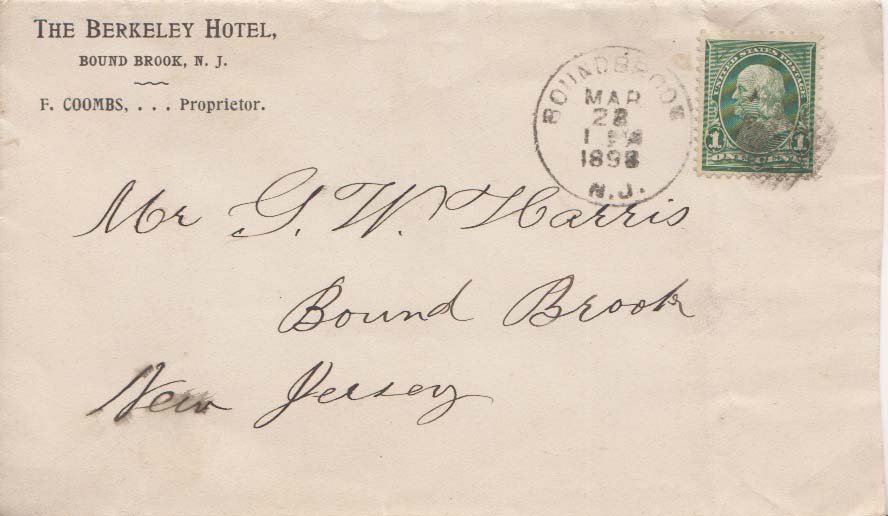 THE BERKELEY HOTEL,
BOUND BROOK, N. J.
F. COOMBS, . . . Proprietor.
BOUNDBROOK
MAR
28
1 PM
1898
N.J.
UNITED STATES POSTAGE
1 1
ONE CENT
Mr G. W. Harris
Bound Brook
New Jersey